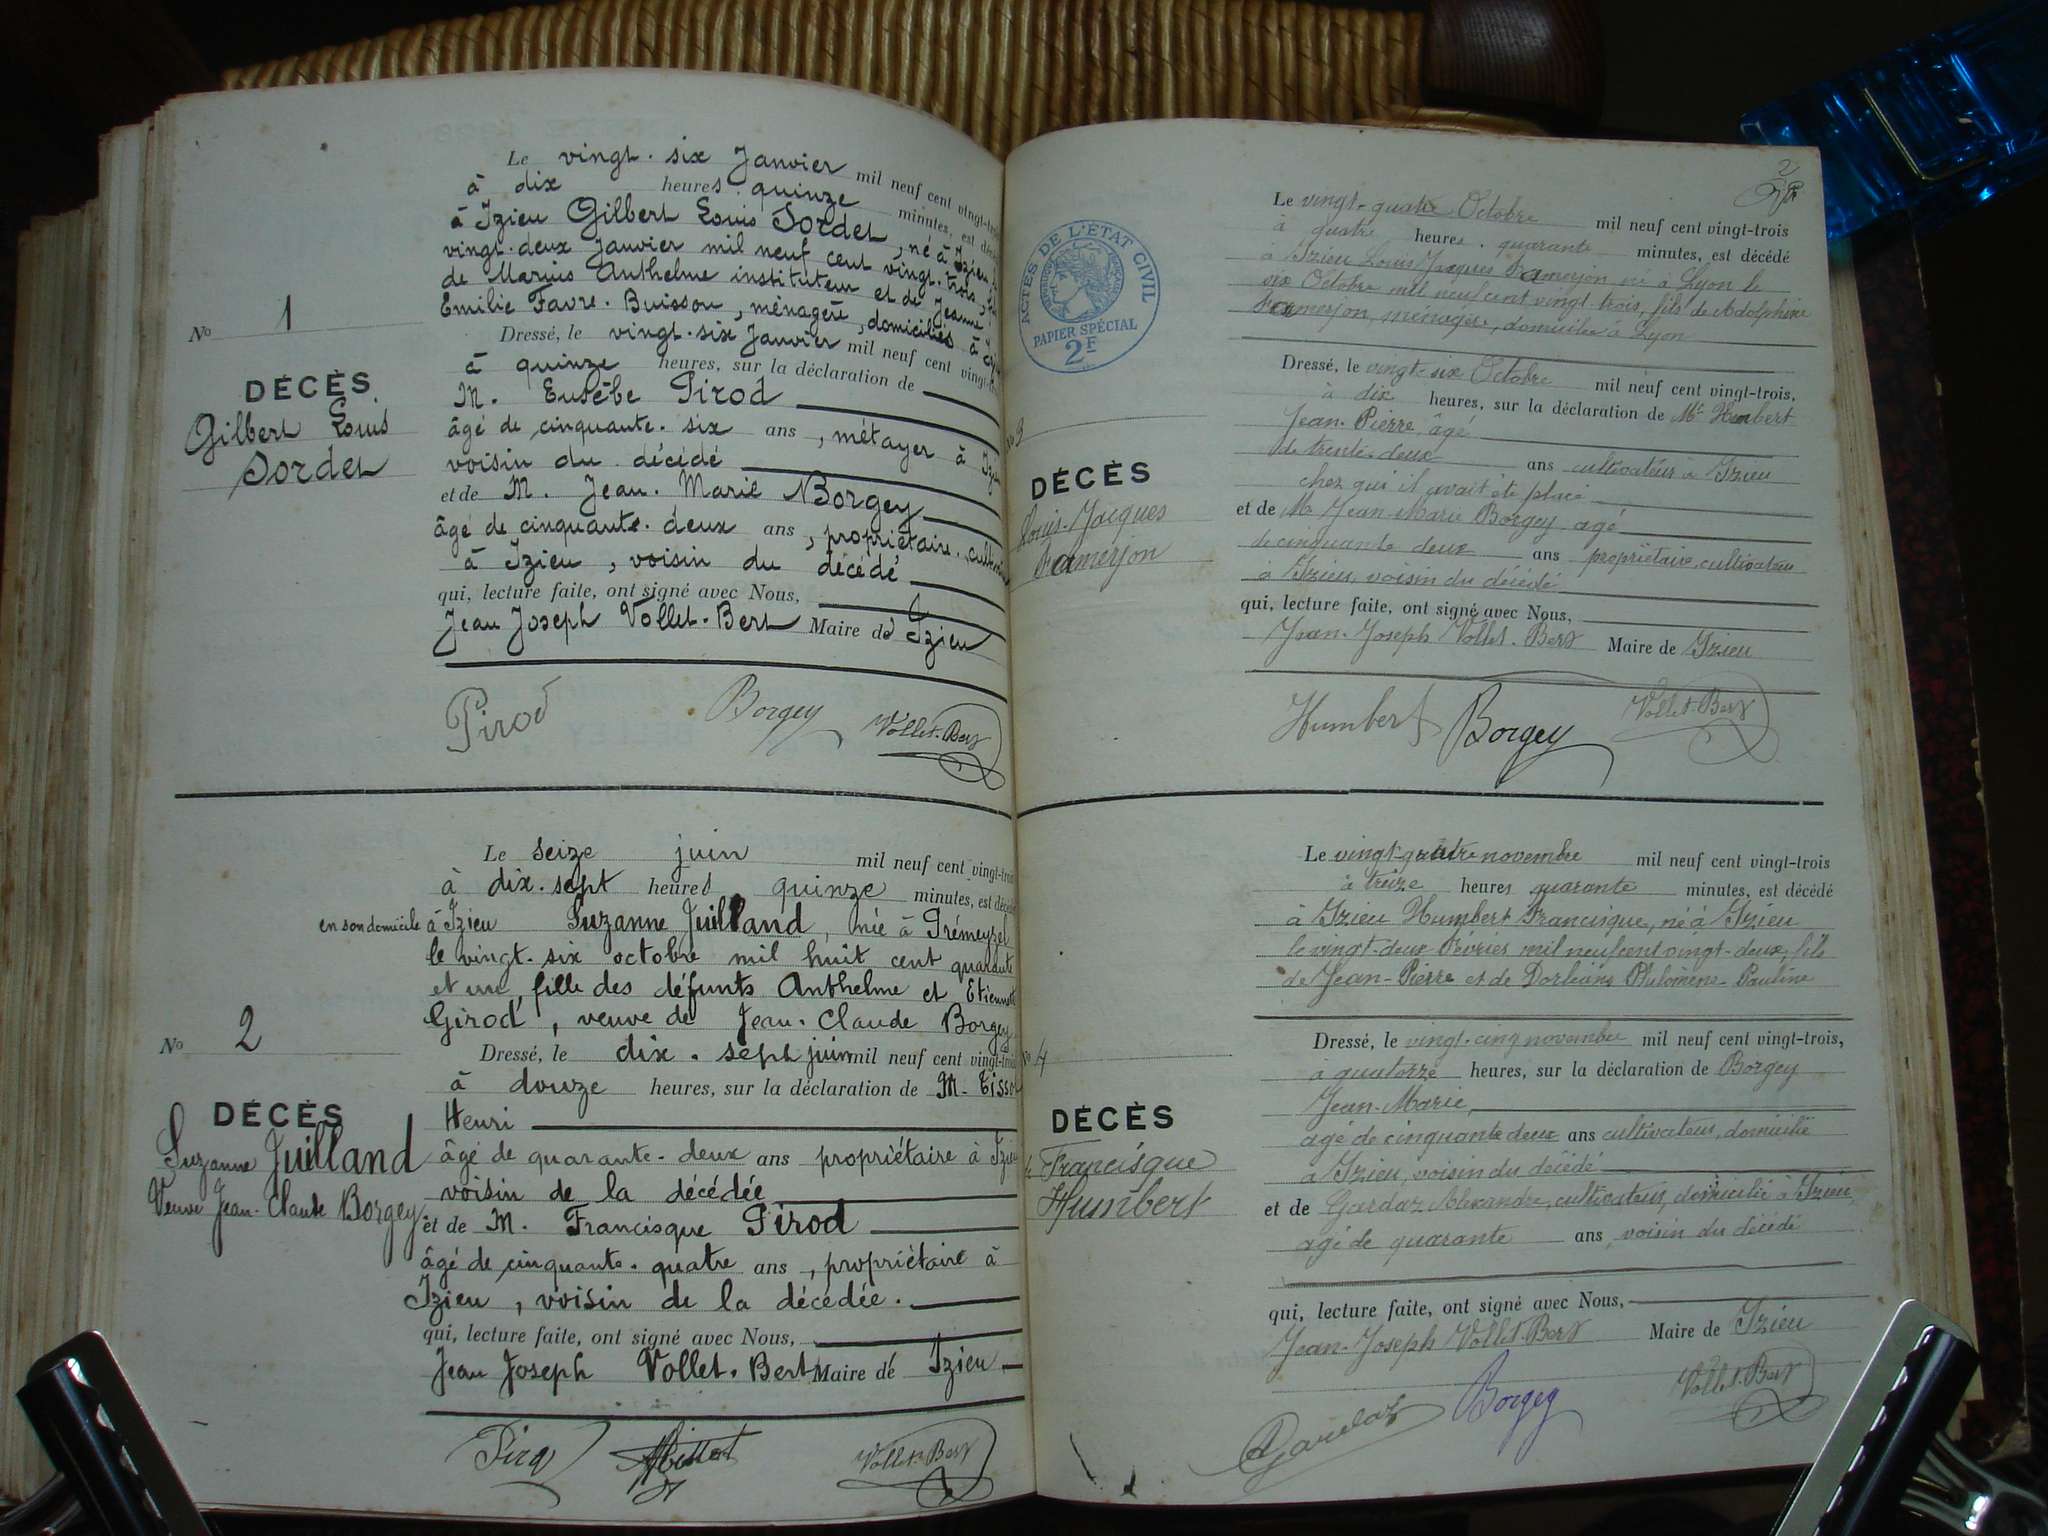 Le vingt-six Janvier mil neuf cent vingt-trois
à dix heures quinze minutes, est décédé
à Izieu Gilbert Louis Sordet, né à Izieu, le
vingt-deux Janvier mil neuf cent vingt-trois, fils
de Marius Anthelme instituteur et de Jeanne
Emilie Favre-Buisson, ménagère, domiciliés à Izieu
No 1
Dressé, le vingt-six Janvier mil neuf cent vingt-trois
à quinze heures, sur la déclaration de
DÉCÈS
Gilbert Louis
Sordet
M. Eusèbe Pirod
âgé de cinquante-six ans, métayer à Izieu
voisin du décédé
et de M. Jean-Marie Borgey
âgé de cinquante-deux ans, propriétaire-cultivateur
à Izieu, voisin du décédé
qui, lecture faite, ont signé avec Nous,
Jean Joseph Vollet-Bert Maire de Izieu
Pirod Borgey Vollet-Bert
Le seize juin mil neuf cent vingt-trois
à dix-sept heures quinze minutes, est décédé
en son domicile à Izieu Suzanne Juilland, née à Prémeyzel
le vingt-six octobre mil huit cent quarante
et un, fille des défunts Anthelme et Etiennette
Girod, veuve de Jean-Claude Borgey
No 2
Dressé, le dix-sept juin mil neuf cent vingt-trois
à douze heures, sur la déclaration de M. Tissot
DÉCÈS
Suzanne Juilland
Veuve Jean-Claude Borgey
Henri
âgé de quarante-deux ans propriétaire à Izieu
voisin de la décédée
et de M. Francisque Pirod
âgé de cinquante-quatre ans, propriétaire à
Izieu, voisin de la décédée.
qui, lecture faite, ont signé avec Nous,
Jean Joseph Vollet-Bert Maire de Izieu
Vollet-Bert
2
ACTES DE L'ETAT CIVIL
PAPIER SPÉCIAL
2F
Le vingt-quatre Octobre mil neuf cent vingt-trois
à quatre heures quarante minutes, est décédé
à Izieu Louis Jacques Framerjon né à Lyon le
six Octobre mil neuf cent vingt-trois, fils de Adolphine
Framerjon, ménagère, domiciliée à Lyon
No 3
Dressé, le vingt-six Octobre mil neuf cent vingt-trois,
à dix heures, sur la déclaration de Mr Humbert
DÉCÈS
Louis-Jacques
Framerjon
Jean-Pierre, âgé
de trente-deux ans cultivateur à Izieu
chez qui il avait été placé
et de M. Jean Marie Borgey agé
de cinquante deux ans propriétaire, cultivateur
à Izieu, voisin du décédé
qui, lecture faite, ont signé avec Nous,
Jean-Joseph Vollet-Bert Maire de Izieu
Humbert Borgey Vollet-Bert
Le vingt-quatre novembre mil neuf cent vingt-trois
à treize heures quarante minutes, est décédé
à Izieu Humbert Francisque, né à Izieu
le vingt-deux Février mil neuf cent vingt-deux, fils
de Jean-Pierre et de Dorléans Philomène-Pauline
No 4
Dressé, le vingt-cinq novembre mil neuf cent vingt-trois,
à quatorze heures, sur la déclaration de Borgey
DÉCÈS
de Francisque
Humbert
Jean-Marie,
agé de cinquante deux ans cultivateur, domicilié
à Izieu, voisin du décédé
et de Gardaz Alexandre, cultivateur, domicilié à Izieu,
agé de quarante ans, voisin du décédé
qui, lecture faite, ont signé avec Nous,
Jean-Joseph Vollet-Bert Maire de Izieu
Borgey Vollet-Bert